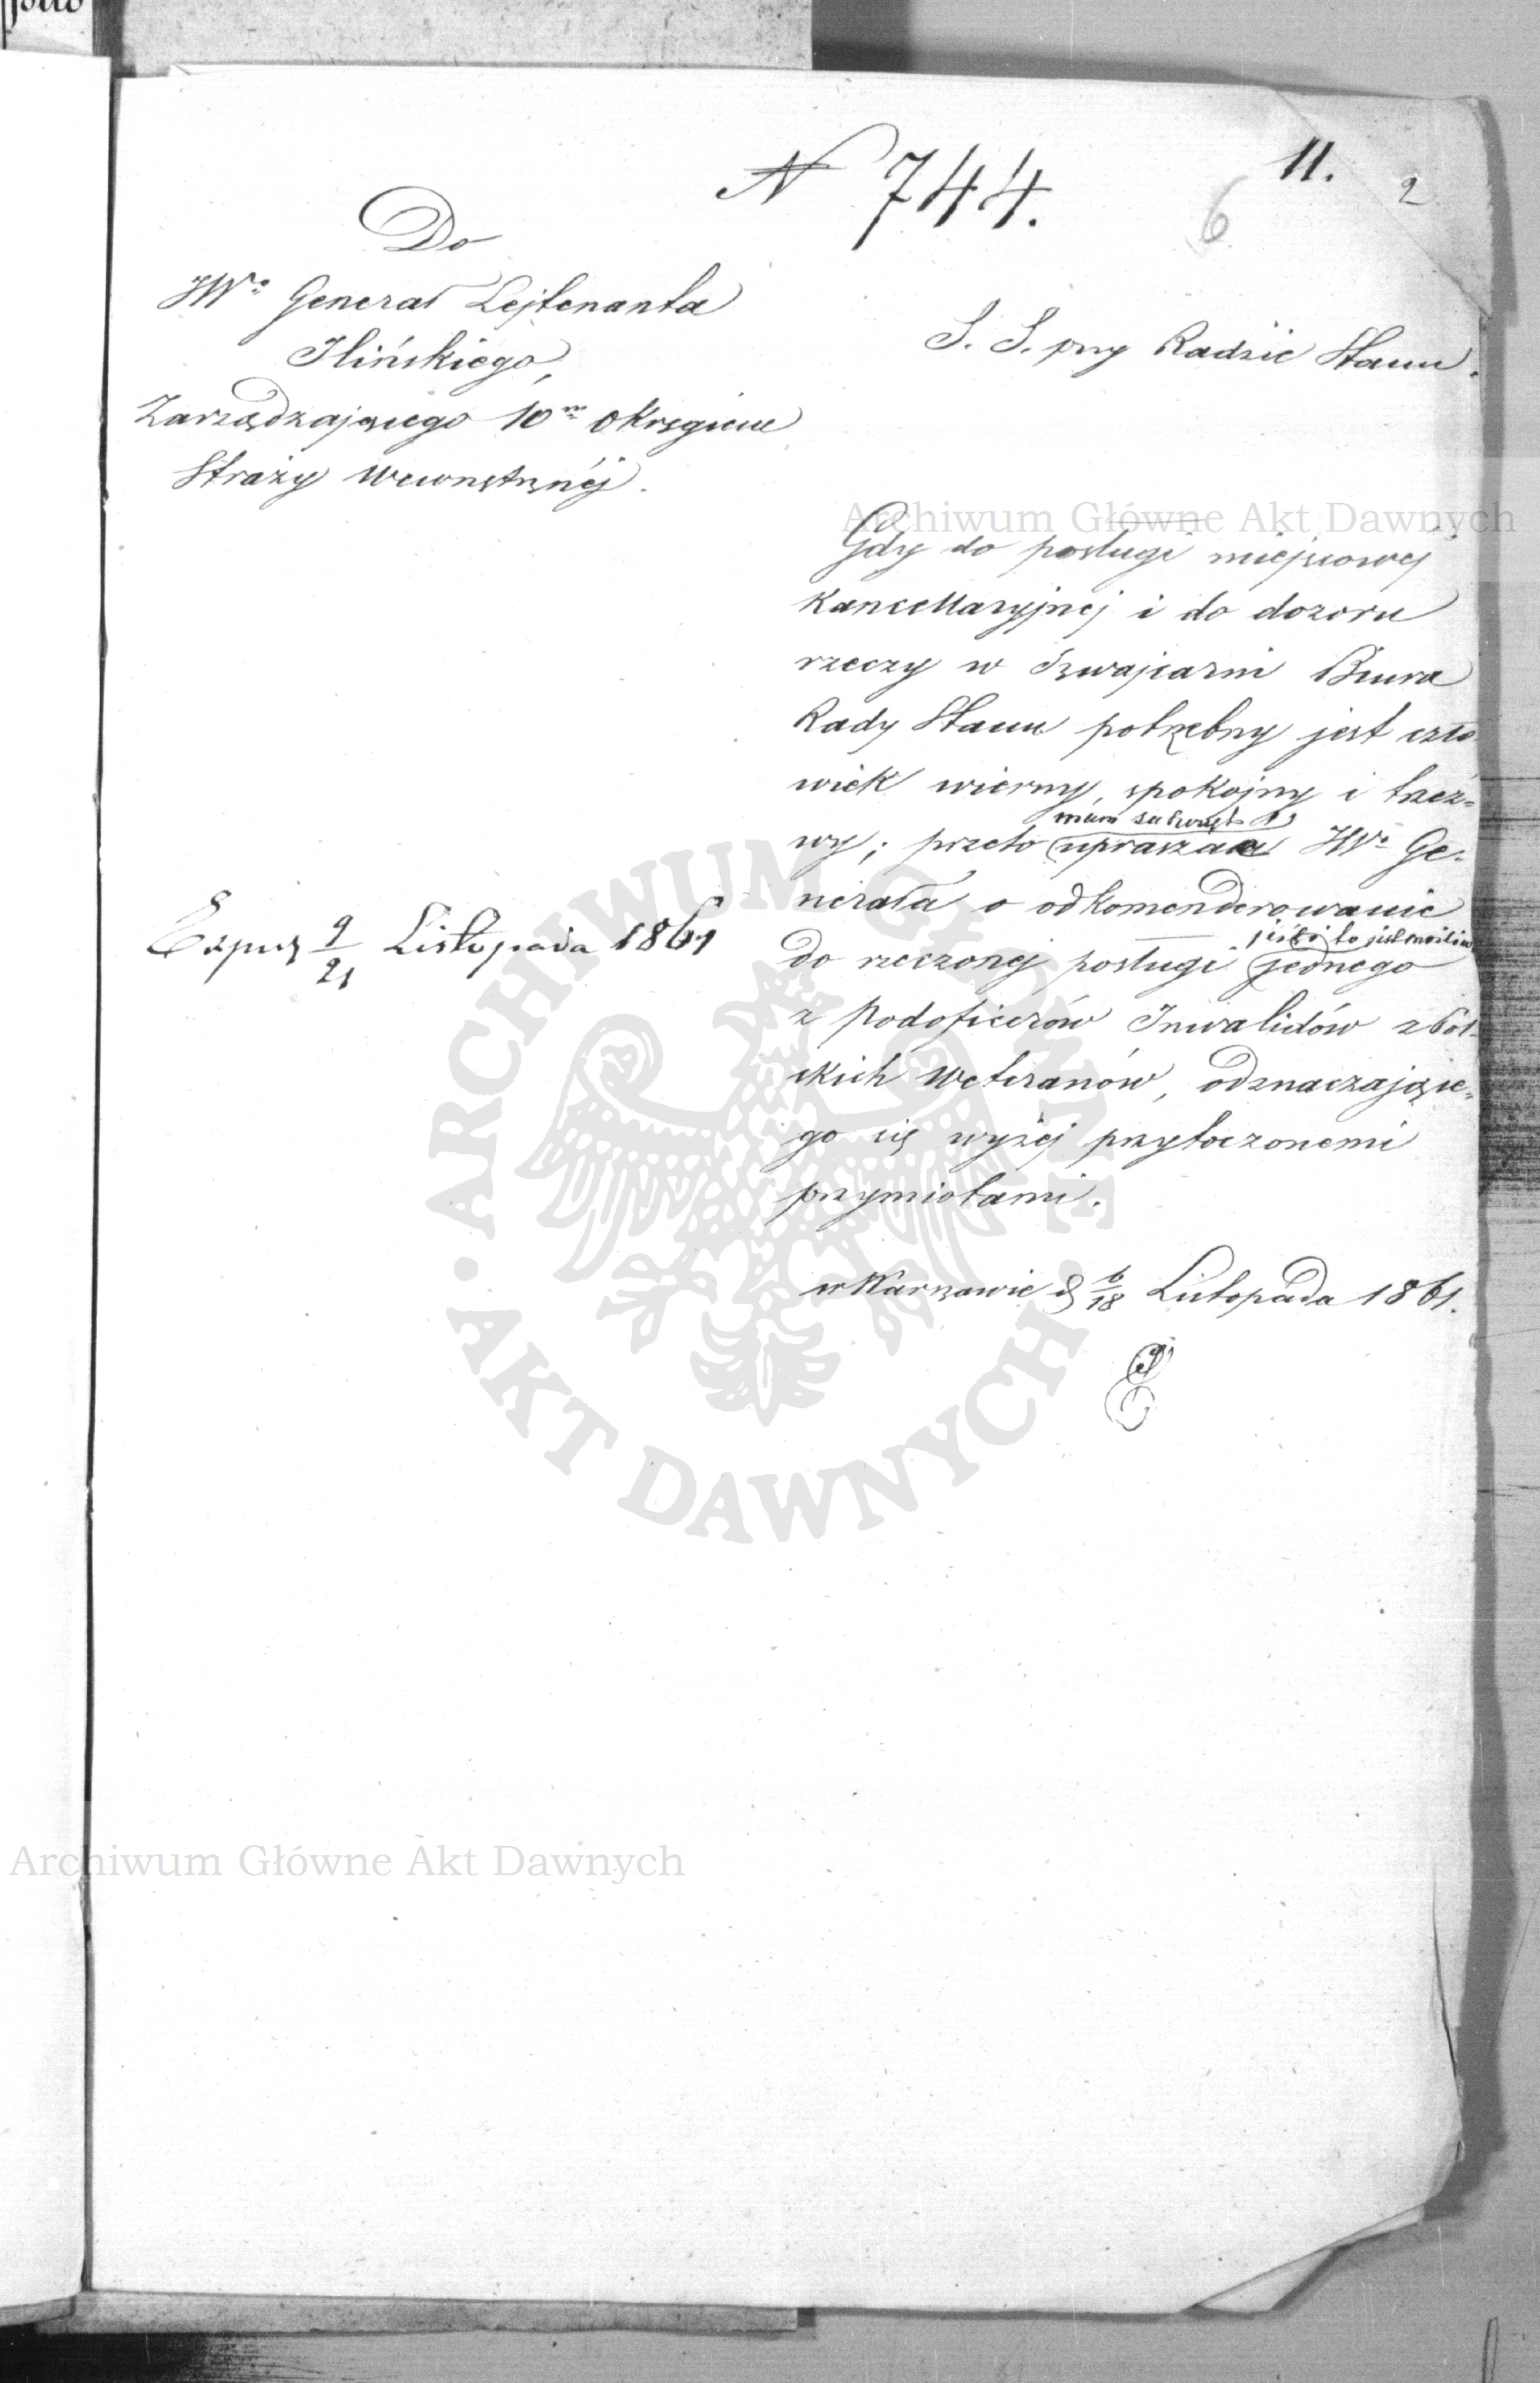 N 744.
11.
2
6
Do
JWo Generał Lejtenanta
Ilińskiego,
Zarządzającego 10m Okręgiem
Straży Wewnętrznéj.
S. S. przy Radzie Stanu.
Archiwum Główne Akt Dawnych
Gdy do posługi miejscowej
Kancellaryjnej i do dozoru
rzeczy w Szwajcarni Biura
Rady Stanu potrzebny jest czło
wiek wierny, spokojny i trzeź=
mam zaszczyt
wy; przeto upraszać JWo Ge=
nerała o odkomenderowanie
jeżeli to jest możliwe
do rzeczonej posługi jednego
z Podoficerów Inwalidów z Pol-
skich Weteranów, odznaczające=
go się wyżej przytoczonemi
przymiotami.
w Warszawie d 6/18 Listopada 1861.
Exped 9/21 Listopada 1861
ARCHIWUM GŁÓWNE
AKT DAWNYCH
Archiwum Główne Akt Dawnych